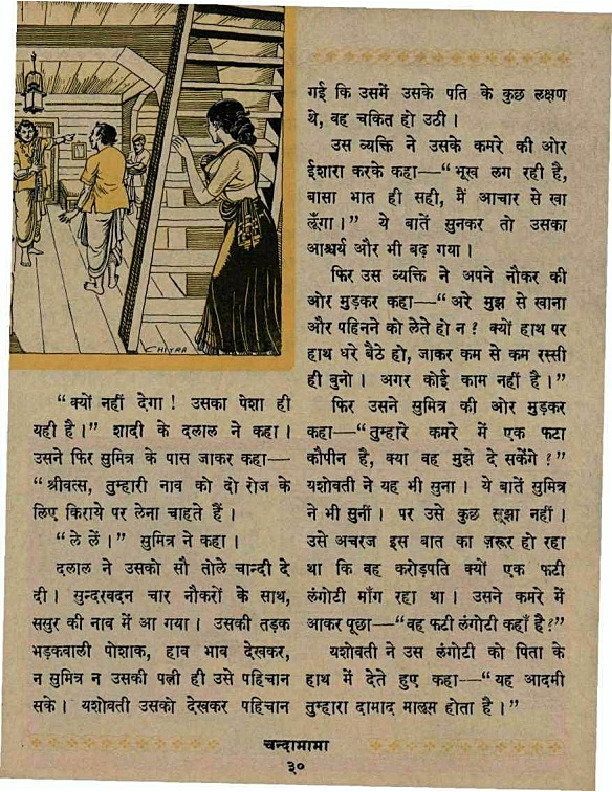 CHITRA
“क्यों नहीं देगा ! उसका पेशा ही
यही है।” शादी के दलाल ने कहा।
उसने फिर सुमित्र के पास जाकर कहा—
“श्रीवत्स, तुम्हारी नाव को दो रोज के
लिए किराये पर लेना चाहते हैं।
“ले लें।” सुमित्र ने कहा।
दलाल ने उसको सौ तोले चान्दी दे
दी। सुन्दरवदन चार नौकरों के साथ,
ससुर की नाव में आ गया। उसकी तड़क
भड़कवाली पोशाक, हाव भाव देखकर,
न सुमित्र न उसकी पत्नी ही उसे पहिचान
सके। यशोवती उसको देखकर पहिचान
गई कि उसमें उसके पति के कुछ लक्षण
थे, वह चकित हो उठी।
उस व्यक्ति ने उसके कमरे की ओर
ईशारा करके कहा—“भूख लग रही है,
बासा भात ही सही, मैं आचार से खा
लूँगा।” ये बातें सुनकर तो उसका
आश्चर्य और भी बढ़ गया।
फिर उस व्यक्ति ने अपने नौकर की
ओर मुड़कर कहा—“अरे मुझ से खाना
और पहिनने को लेते हो न ? क्यों हाथ पर
हाथ धरे बैठे हो, जाकर कम से कम रस्सी
ही बुनो। अगर कोई काम नहीं है।”
फिर उसने सुमित्र की ओर मुड़कर
कहा—“तुम्हारे कमरे में एक फटा
कौपीन है, क्या वह मुझे दे सकेंगे ?”
यशोवती ने यह भी सुना। ये बातें सुमित्र
ने भी सुनीं। पर उसे कुछ सूझा नहीं।
उसे अचरज इस बात का ज़रूर हो रहा
था कि वह करोड़पति क्यों एक फटी
लंगोटी माँग रहा था। उसने कमरे में
आकर पूछा—“वह फटी लंगोटी कहाँ है?”
यशोवती ने उस लंगोटी को पिता के
हाथ में देते हुए कहा—“यह आदमी
तुम्हारा दामाद मालूम होता है।”
चन्दामामा
३०